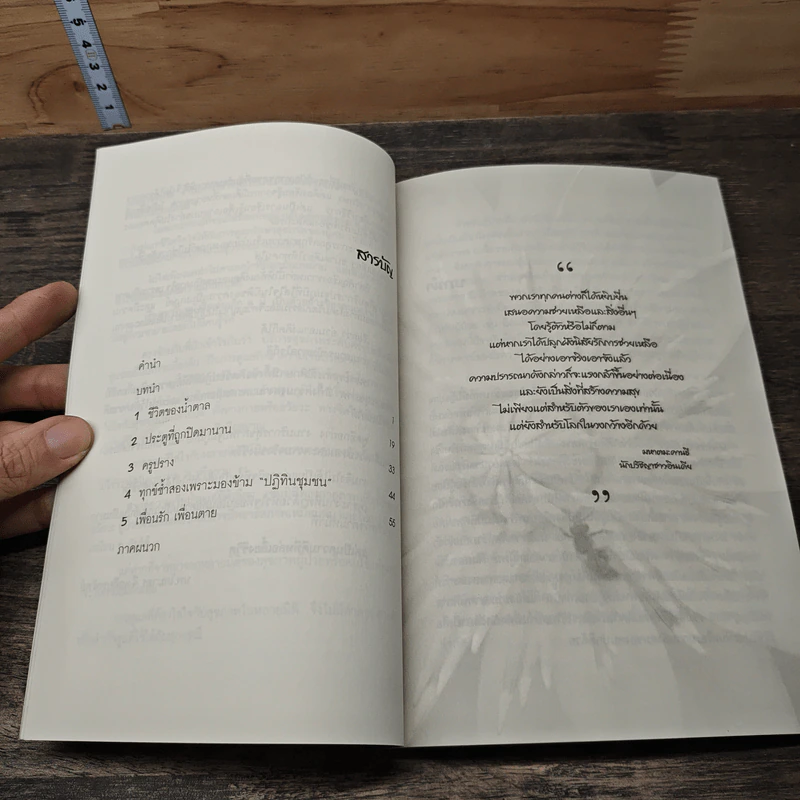 5 4 3 2 1
สารบัญ
คำนำ
บทนำ
1 ชีวิตของน้ำตาล 1
2 ประตูที่ถูกปิดมานาน 19
3 ครูปราง 33
4 ทุกข์ซ้ำสองเพราะมองข้าม “ปฏิทินชุมชน” 44
5 เพื่อนรัก เพื่อนตาย 55
ภาคผนวก
“
พวกเราทุกคนต่างก็ได้หยิบยื่น
เสนอความช่วยเหลือและสิ่งอื่นๆ
โดยรู้ตัวหรือไม่ก็ตาม
แต่หากเราได้ปลูกฝังนิสัยรักการช่วยเหลือ
ได้อย่างเอาจริงเอาจังแล้ว
ความปรารถนาดังกล่าวก็จะแรงกล้าขึ้นอย่างต่อเนื่อง
และยังเป็นสิ่งที่สร้างความสุข
ไม่เพียงแต่สำหรับตัวของเราเองเท่านั้น
แต่ยังสำหรับโลกในวงกว้างอีกด้วย
มหาตมะ คานธี
นักปรัชญาชาวอินเดีย
”